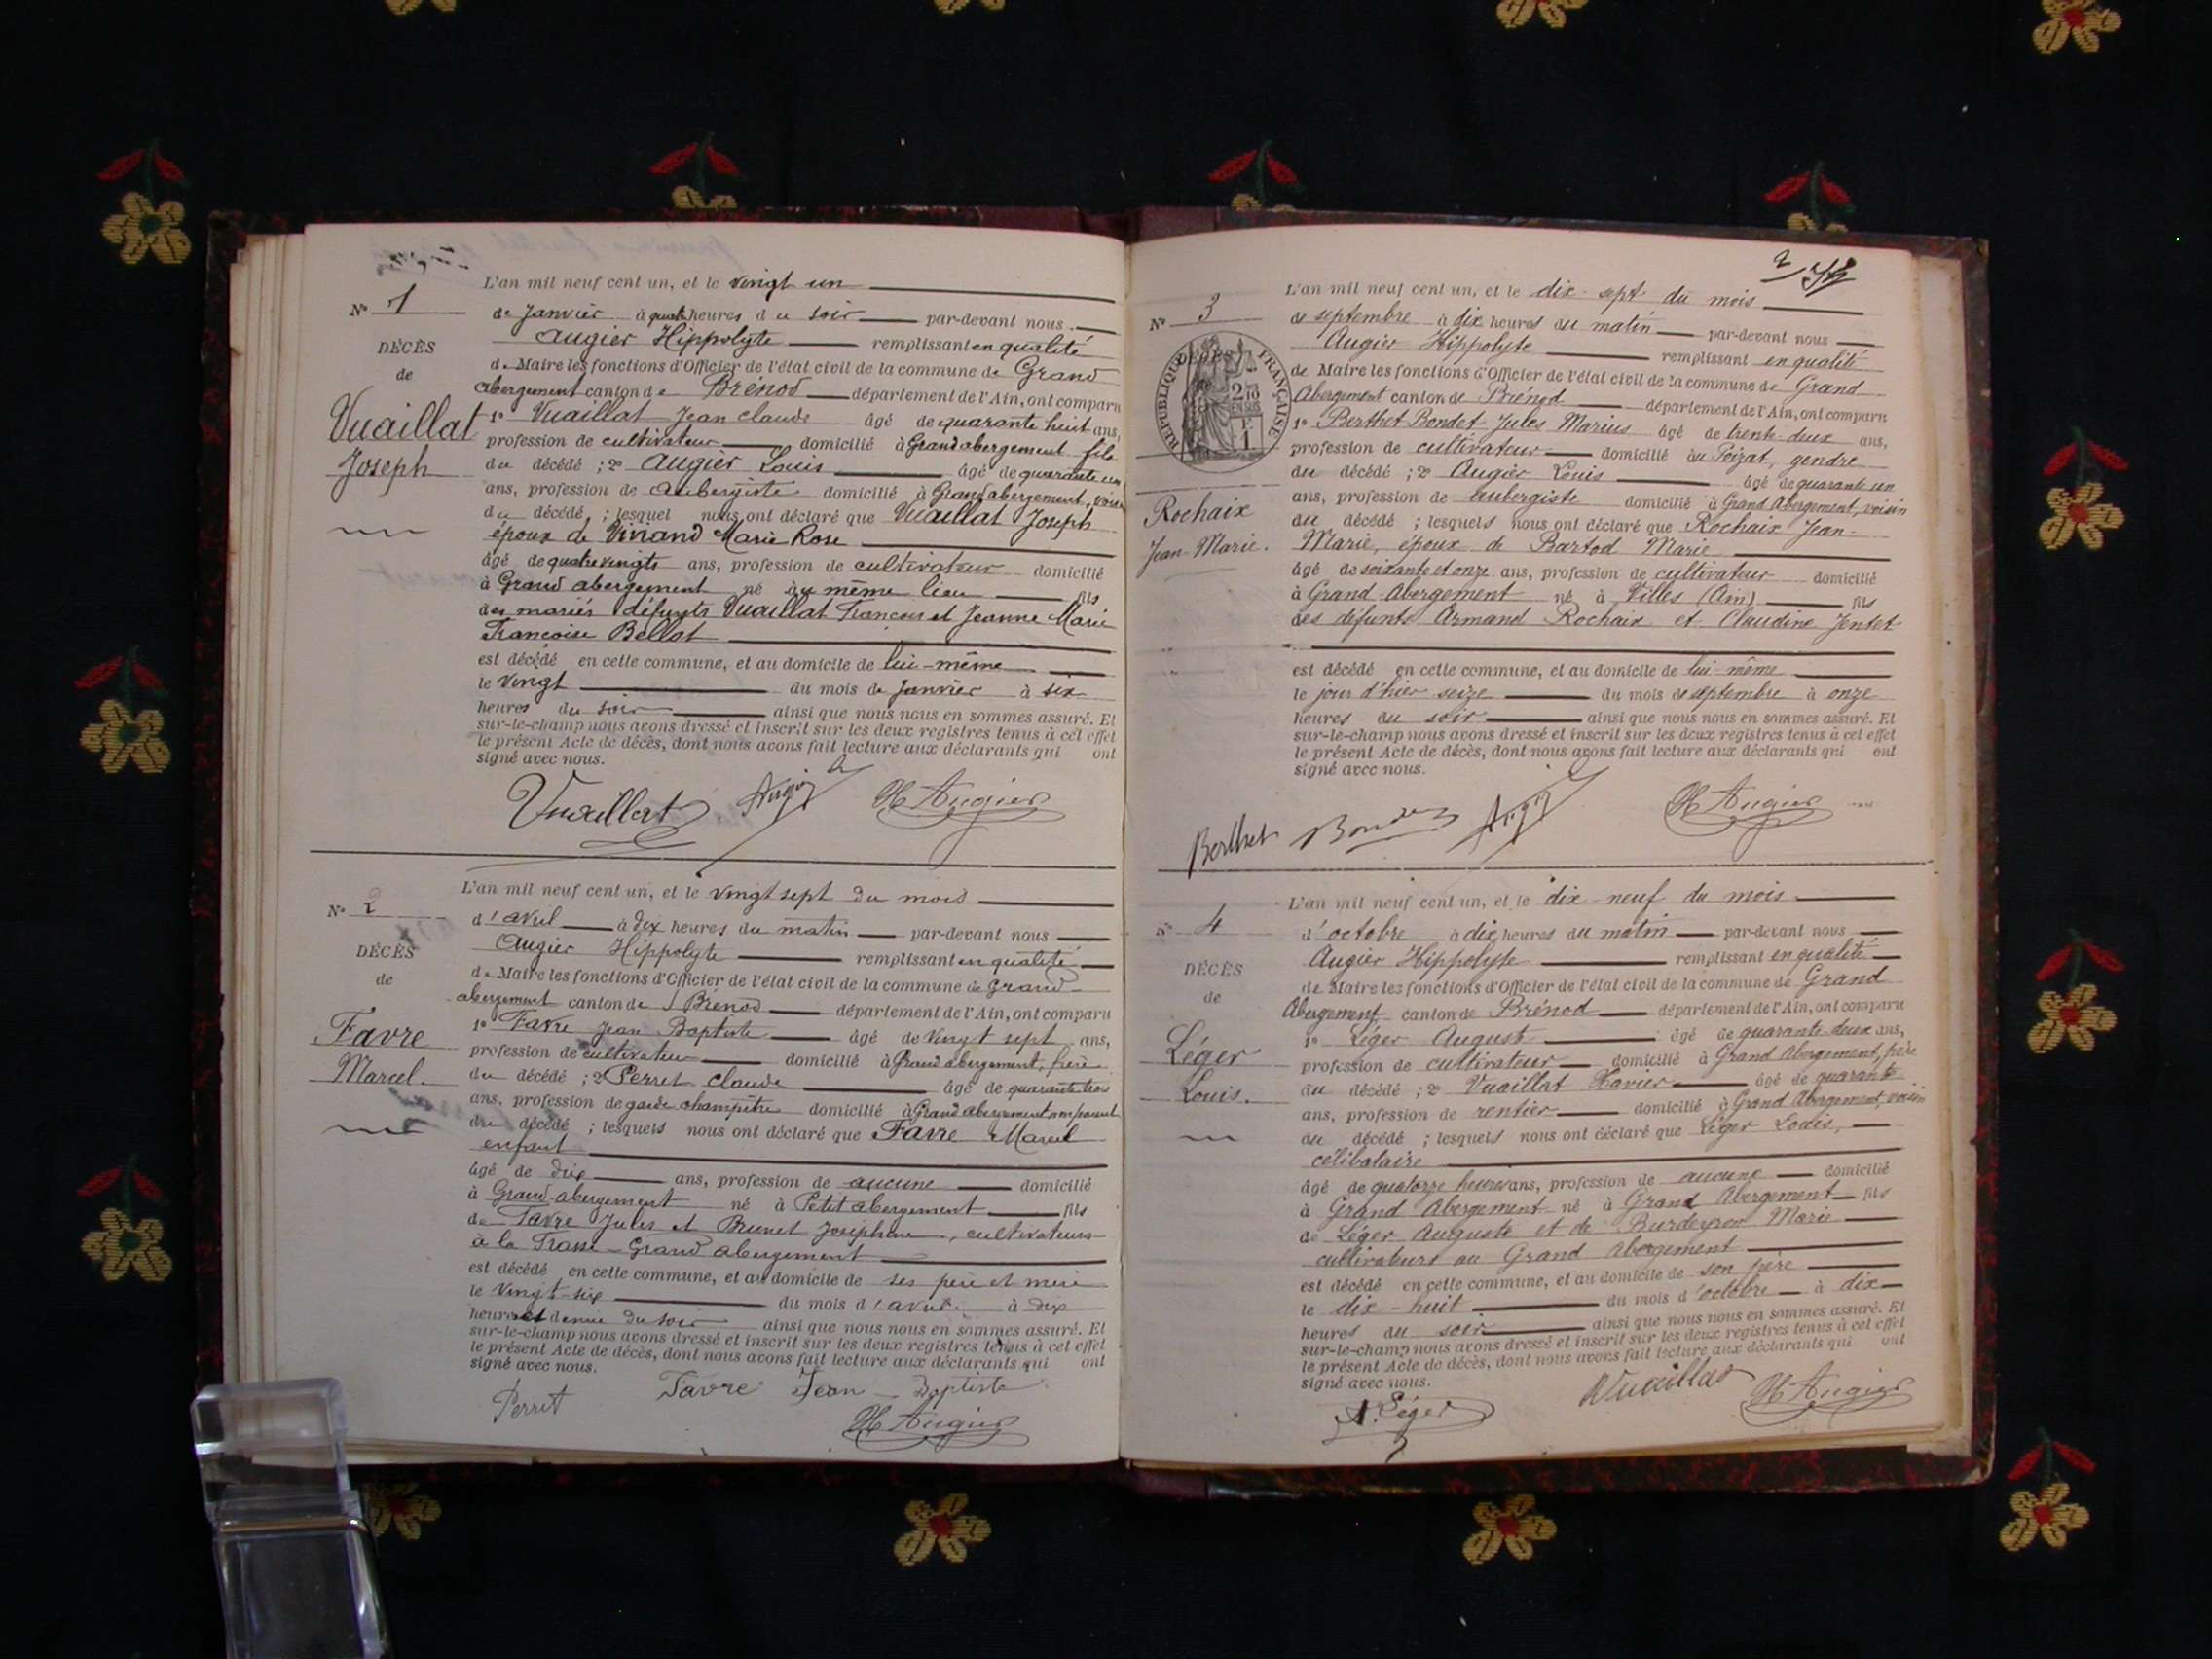 L'an mil neuf cent un, et le vingt un
N° 1
de Janvier à quatre heures du soir par-devant nous
Augier Hippolyte remplissant en qualité
DÉCÈS
de Maire les fonctions d'Officier de l'état civil de la commune de Grand
de
abergement canton de Brénod département de l'Ain, ont comparu
Vuaillat
1° Vuaillat Jean Claude âgé de quarante huit ans,
profession de cultivateur domicilié à Grand abergement fils
Joseph
du décédé ; 2° Augier Louis âgé de quarante un
ans, profession de aubergiste domicilié à Grand abergement, voisin
du décédé ; lesquel nous ont déclaré que Vuaillat Joseph
époux de Vinand Marie Rose
âgé de quatre vingts ans, profession de cultivateur domicilié
à Grand abergement né au même lieu fils
des mariés défunts Vuaillat Francois et Jeanne Marie
Francoise Bellot
est décédé en cette commune, et au domicile de lui-même
le vingt du mois de Janvier à six
heures du soir ainsi que nous nous en sommes assuré. Et
sur-le-champ nous avons dressé et inscrit sur les deux registres tenus à cet effet
le présent Acte de décès, dont nous avons fait lecture aux déclarants qui ont
signé avec nous.
Vuaillat Augier H Augier
L'an mil neuf cent un, et le vingt sept du mois
N° 2
d'avril à dix heures du matin par-devant nous
Augier Hippolyte remplissant en qualité
DÉCÈS
de Maire les fonctions d'Officier de l'état civil de la commune de Grand
de
abergement canton de Brénod département de l'Ain, ont comparu
Favre
1° Favre Jean Baptiste âgé de vingt sept ans,
profession de cultivateur domicilié à Grand abergement, frère
Marcel.
du décédé ; 2° Perret Claude âgé de quarante trois
ans, profession de garde champêtre domicilié à Grand abergement non parent
du décédé ; lesquels nous ont déclaré que Favre Marcel
enfant
âgé de dix ans, profession de aucune domicilié
à Grand-abergement né à Petit abergement fils
de Favre Jules et Brunet Josephine, cultivateurs
à la Trasse - Grand abergement
est décédé en cette commune, et au domicile de ses père et mère
le vingt-six du mois d'avril à dix
heures et demie du soir ainsi que nous nous en sommes assuré. Et
sur-le-champ nous avons dressé et inscrit sur les deux registres tenus à cet effet
le présent Acte de décès, dont nous avons fait lecture aux déclarants qui ont
signé avec nous.
Perret Favre Jean-Baptiste
H Augier
2
L'an mil neuf cent un, et le dix-sept du mois
N° 3
de septembre à dix heures du matin par-devant nous
Augier Hippolyte remplissant en qualité
RÉPUBLIQUE FRANÇAISE
de Maire les fonctions d'Officier de l'état civil de la commune de Grand
Abergement canton de Brénod département de l'Ain, ont comparu
1° Berthet-Bondet Jules Marius âgé de trente-deux ans,
profession de cultivateur domicilié au Poizat, gendre
du décédé ; 2° Augier Louis âgé de quarante un
ans, profession de aubergiste domicilié à Grand Abergement, voisin
Rochaix
du décédé ; lesquels nous ont déclaré que Rochaix Jean-
Jean-Marie.
Marie, époux de Bartod Marie
âgé de soixante et onze ans, profession de cultivateur domicilié
à Grand-Abergement né à Villes (Ain) fils
des défunts Armand Rochaix et Claudine Jentet
est décédé en cette commune, et au domicile de lui-même
le jour d'hier seize du mois de septembre à onze
heures du soir ainsi que nous nous en sommes assuré. Et
sur-le-champ nous avons dressé et inscrit sur les deux registres tenus à cet effet
le présent Acte de décès, dont nous avons fait lecture aux déclarants qui ont
signé avec nous.
Berthet Bondet Augier H Augier
L'an mil neuf cent un, et le dix-neuf du mois
N° 4
d'octobre à dix heures du matin par-devant nous
Augier Hippolyte remplissant en qualité
DÉCÈS
de Maire les fonctions d'Officier de l'état civil de la commune de Grand
de
Abergement canton de Brénod département de l'Ain, ont comparu
Léger
1° Léger Auguste âgé de quarante-deux ans,
profession de cultivateur domicilié à Grand Abergement, père
Louis.
du décédé ; 2° Vuaillat Xavier âgé de quarante
ans, profession de rentier domicilié à Grand Abergement, voisin
du décédé ; lesquels nous ont déclaré que Léger Louis,
célibataire
âgé de quatorze heures ans, profession de aucune domicilié
à Grand Abergement né à Grand Abergement fils
de Léger Auguste et de Burdeyron Marie
cultivateurs au Grand Abergement
est décédé en cette commune, et au domicile de son père
le dix-huit du mois d'octobre à dix
heures du soir ainsi que nous nous en sommes assuré. Et
sur-le-champ nous avons dressé et inscrit sur les deux registres tenus à cet effet
le présent Acte de décès, dont nous avons fait lecture aux déclarants qui ont
signé avec nous.
A. Léger Vuaillat H Augier